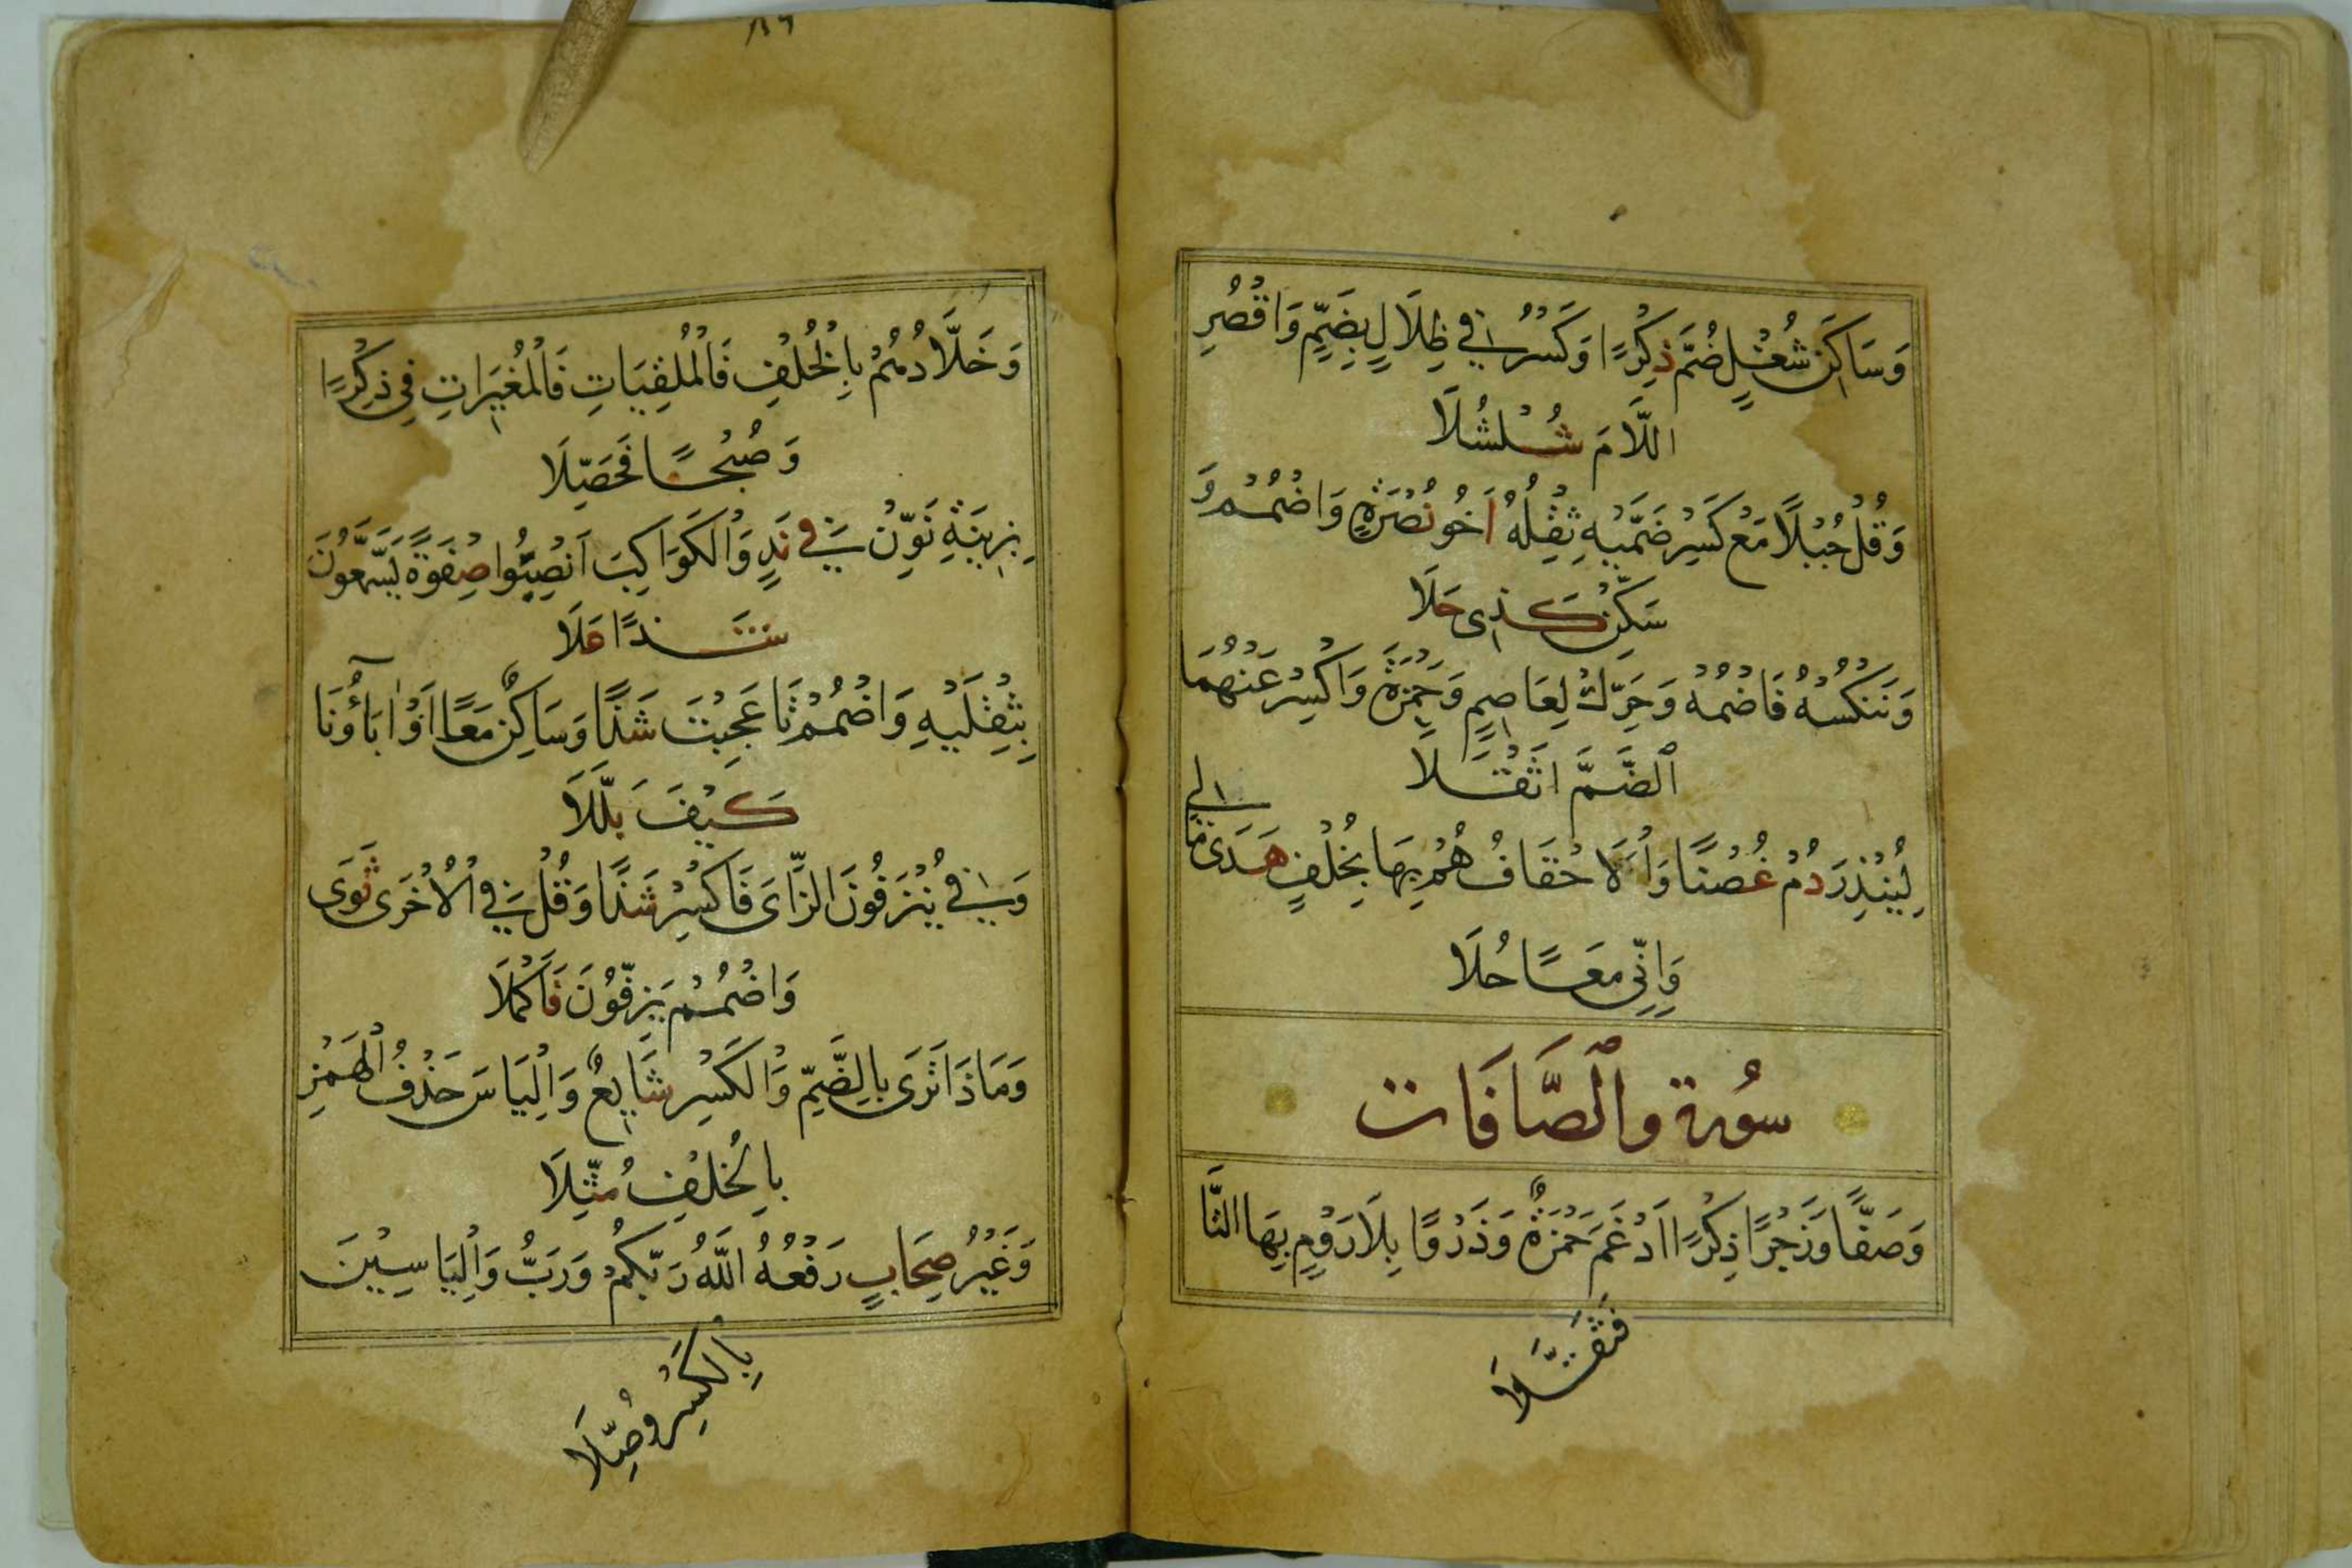 وَسَاكِنَ شُغْلٍ ضُمَّ ذِكْرًا وَكَسْرُ فِي ظِلَالٍ بِضَمٍّ وَاقْصُرِ
اللَّامَ شُلْشُلَا
وَقُلْ جُبُلًا مَعْ كَسْرِ ضَمَّيْهِ ثِقْلُهُ أَخُو نُصْرَةٍ وَاضْمُمْ وَ
سَكِّنْ كَذِى حَلَا
وَنَنْكُسْهُ فَاضْمُمْهُ وَحَرِّكْ لِعَاصِمٍ وَحَمْزَةَ وَاكْسِرْ عَنْهُمَا
ٱلضَّمَّ اثْقَلَا
لِيُنْذِرَ دُمْ غُصْنًا وَالْاَحْقَافُ هُمْ بِهَا بِخُلْفٍ هَدَى مَا لِي
وَاِنِّى مَعًا حُلَا
سُورة وٱلصَّافَات
وَصَفًّا وَزَجْرًا ذِكْرًا ادْغَمَ حَمْزَةٌ وَذَرْوًا بِلَا رَوْمٍ بِهَا التَّا
فَثَقَّلَا
١٨٩
وَخَلَّادُهُمْ بِالْخُلْفِ فَالْمُلْقِيَاتِ فَالْمُغِيرَاتِ فِى ذِكْرًا
وَصُبْحًا فَحَصِّلَا
بِزِينَةِ نَوِّنْ فِي نَدٍ وَالْكَوَاكِبَ انْصِبُوا صِفْوَةً يَسَّمَّعُونَ
شَذًا عَلَا
بِثِقْلَيْهِ وَاضْمُمْ تَا عَجِبْتَ شَذًا وَسَاكِنٌ مَعًا اَوْ اٰبَآؤُنَا
كَيْفَ بَلَّلَا
وَفِي يُنْزَفُونَ الزَّاىَ فَاكْسِرْ شَذًا وَقُلْ فِي الْاُخْرَى ثَوَى
وَاضْمُمْ يَزِفُّونَ فَاكْمُلَا
وَمَاذَا تَرَى بِالضَّمِّ وَالْكَسْرِ شَايِعٌ وَاِلْيَاسَ حَذْفُ الْهَمْزِ
بِالْخُلْفِ مُثِّلَا
وَغَيْرُ صِحَابٍ رَفْعُهُ اللّٰهُ رَبُّكُمْ وَرَبُّ وَاِلْيَاسِينَ
بِالْكَسْرِ وُصِّلَا